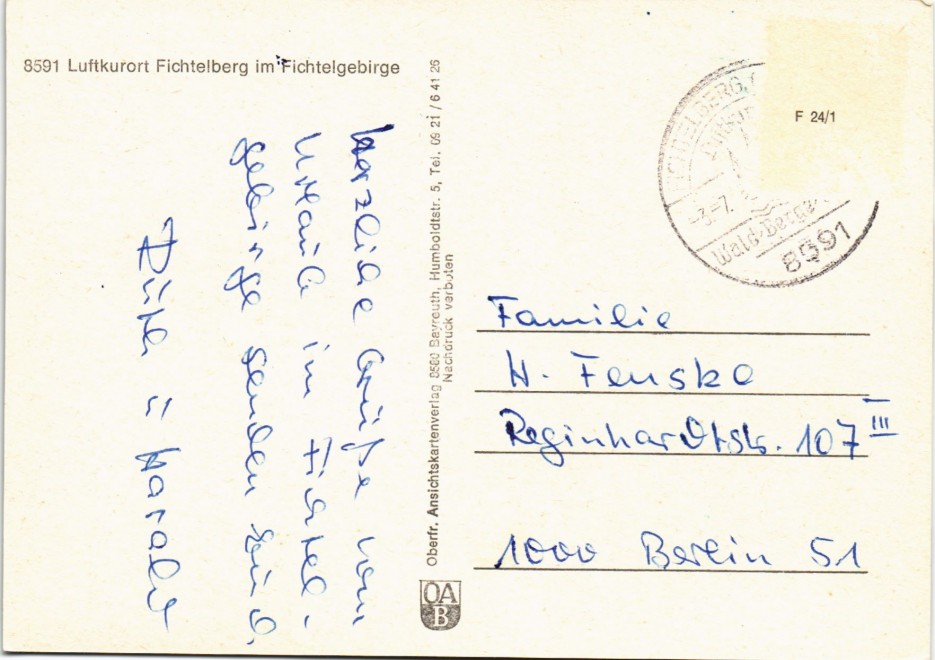 8591 Luftkurort Fichtelberg im Fichtelgebirge
Herzliche Grüße vom
Urlaub im Fichtel-
gebirge senden Euch
u Harald
Oberfr. Ansichtskartenverlag 8580 Bayreuth, Humboldtstr. 5, Tel. 09 21 / 6 41 26
Nachdruck verboten
OA
B
F 24/1
FICHTELBERG
-3.-7.
Wald-Berge-
8591
Familie
H. Fenske
Reginhardtstr. 107 III
1000 Berlin 51